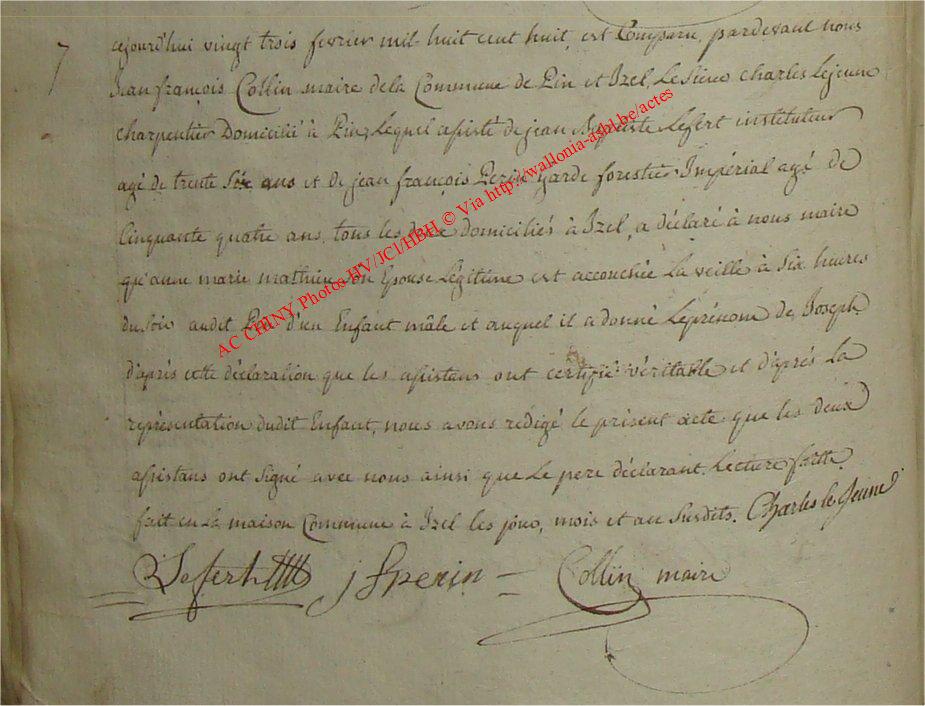 7
cejourd'hui vingt trois fevrier mil huit cent huit, est Comparu, pardevant nous
Jean françois Collin maire dela Commune de Pin et Izel, Le Sieur charles Lejeune
charpentier Domicilié à Pin, Lequel assisté de jean Baptiste Lefert instituteur
agé de trente Six ans et de jean françois Perin garde forestier Impérial agé de
Cinquante quatre ans, tous les deux domiciliés à Izel, a déclaré à nous maire
qu'anne marie mathieu son Epouse Légitime est accouchée La veille à Six heures
du soir audit Pin d'un Enfant mâle et auquel il a donné Le prénom de Joseph
d'après cette déclaration que les assistans ont certifié véritable et d'après La
représentation dudit Enfant, nous avons rédigé le présent acte que les deux
assistans ont Signé avec nous ainsi que Le pere déclarant. Lecture faitte.
fait en La maison Commune à Izel les jour, mois et an Susdits. Charles le Jeune
Lefert j f perin Collin maire
AC CHINY Photos HV/JCl/HBH © Via http://wallonia-asbl.be/actes